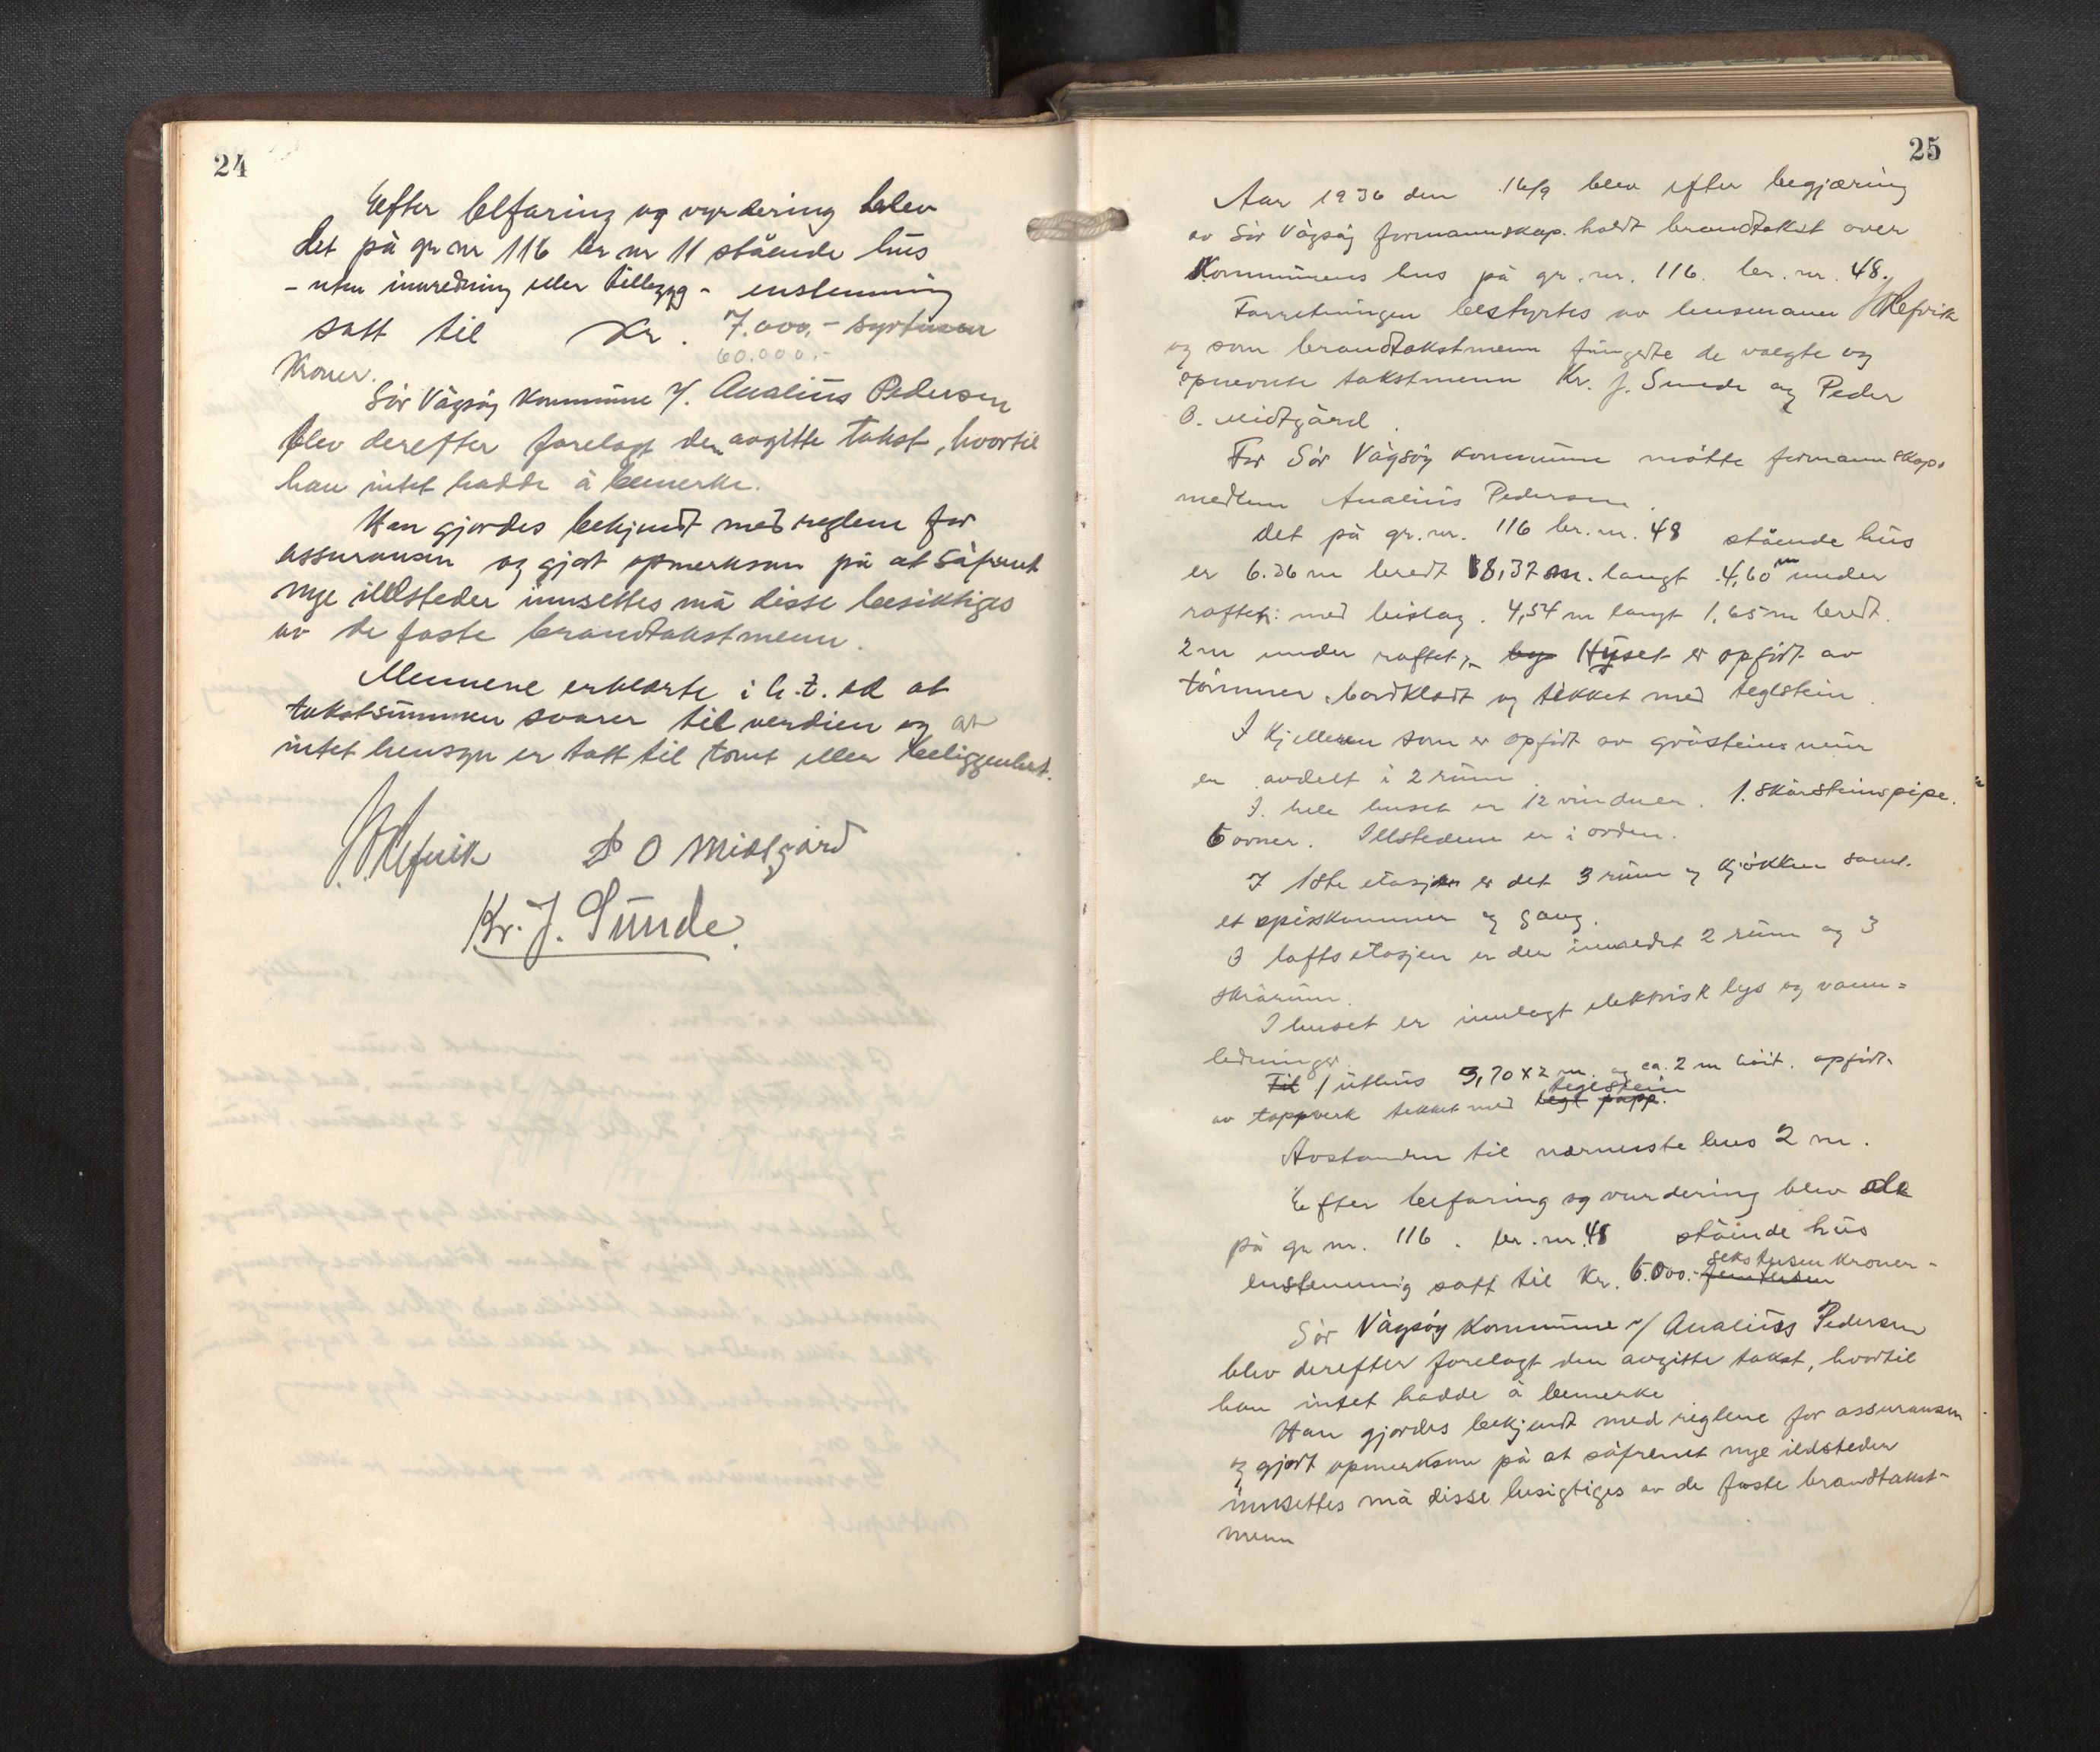 24
Efter befaring og vyrdering blev
det på gr nr 116 br nr 11 stående hus
- uten innredning eller tilbygg - enstemmig
satt til Kr. 7.000,- syvtusen
60.000,-
Kroner.
Sör Vågsöy Kommune v/. Analius Pedersen
blev derefter forelagt den avgitte takst, hvortil
han intet hadde å bemerke.
Han gjordes bekjendt med reglene for
assuransen og gjort opmerksom på at såfremt
nye illdsteder innsettes må disse besiktiges
av de faste brandtakstmenn.
Mennene erklærte i h. t. ed at
takstsummen svarer til verdien og at
intet hensyn er tatt til tomt eller beliggenhet.
Refvik P O Midtgård
Kr. J. Sunde.
25
Aar 1936 den 16/9 blev efter begjæring
av Sör Vågsöy formannskap. holdt brandtakst over
Kommunens hus på gr. nr. 116. br. nr. 48.
Forretningen bestyrtes av lensmann Refvik
og som brandtakstmenn fungerte de valgte og
opnevnte takstmenn Kr. J. Sunde og Peder
O. Midtgård.
For Sör Vågsöy Kommune mötte formannskaps
medlem Analius Pedersen.
Det på gr. nr. 116 br. nr. 48 stående hus
er 6.36 m bredt 8,37 m. langt 4,60 m under
raftet: med bislag. 4,54 m langt 1,65 m bredt.
2 m under raftet, Huset er opfört av
tömmer, bordklædt og tekket med teglstein.
I Kjelleren som er opfört av gråsteins mur
er avdelt i 2 rum.
I hele huset er 12 vinduer. 1. Skorsteinspipe.
6 ovner. Illstedene er i orden.
I 1ste etasjen er det 3 rum og Kjökken samt
et spisskammer og gang.
I loftsetasjen er der innredet 2 rum og 3
skrårum.
I huset er innlagt elektrisk lys og vann=
ledninger.
Til 1 uthus 3,70 x 2 m. og ca. 2 m höit. opfört
teglstein
av toppverk tekket med tegt papp.
Avstanden til nærmeste hus 2 m.
Efter befaring og vurdering blev de
på gr nr. 116. br. nr. 48 stående hus
sekstusen Kroner-
enstemmig satt til Kr. 6.000.- femtusen
Sör Vågsöy Kommune v/ Analius Pedersen
blev derefter forelagt den avgitte takst, hvortil
han intet hadde å bemerke
Han gjordes bekjendt med reglene for assuransen
og gjort opmerksom på at såfremt nye ildsteder
innsettes må disse besigtiges av de faste brandtakst-
menn